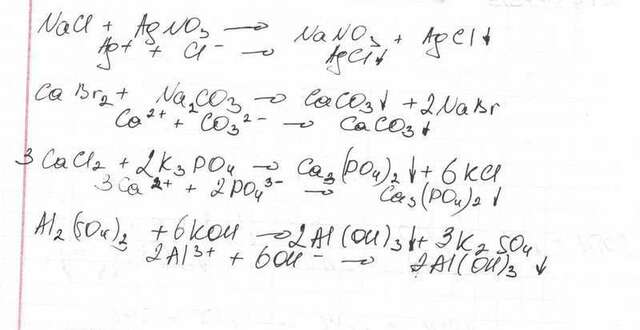 NaCl + AgNO₃ → NaNO₃ + AgCl↓
Ag⁺ + Cl⁻ → AgCl↓
CaBr₂ + Na₂CO₃ → CaCO₃↓ + 2NaBr
Ca²⁺ + CO₃²⁻ → CaCO₃↓
3CaCl₂ + 2K₃PO₄ → Ca₃(PO₄)₂↓ + 6KCl
3Ca²⁺ + 2PO₄³⁻ → Ca₃(PO₄)₂↓
Al₂(SO₄)₃ + 6KOH → 2Al(OH)₃↓ + 3K₂SO₄
2Al³⁺ + 6OH⁻ → 2Al(OH)₃↓